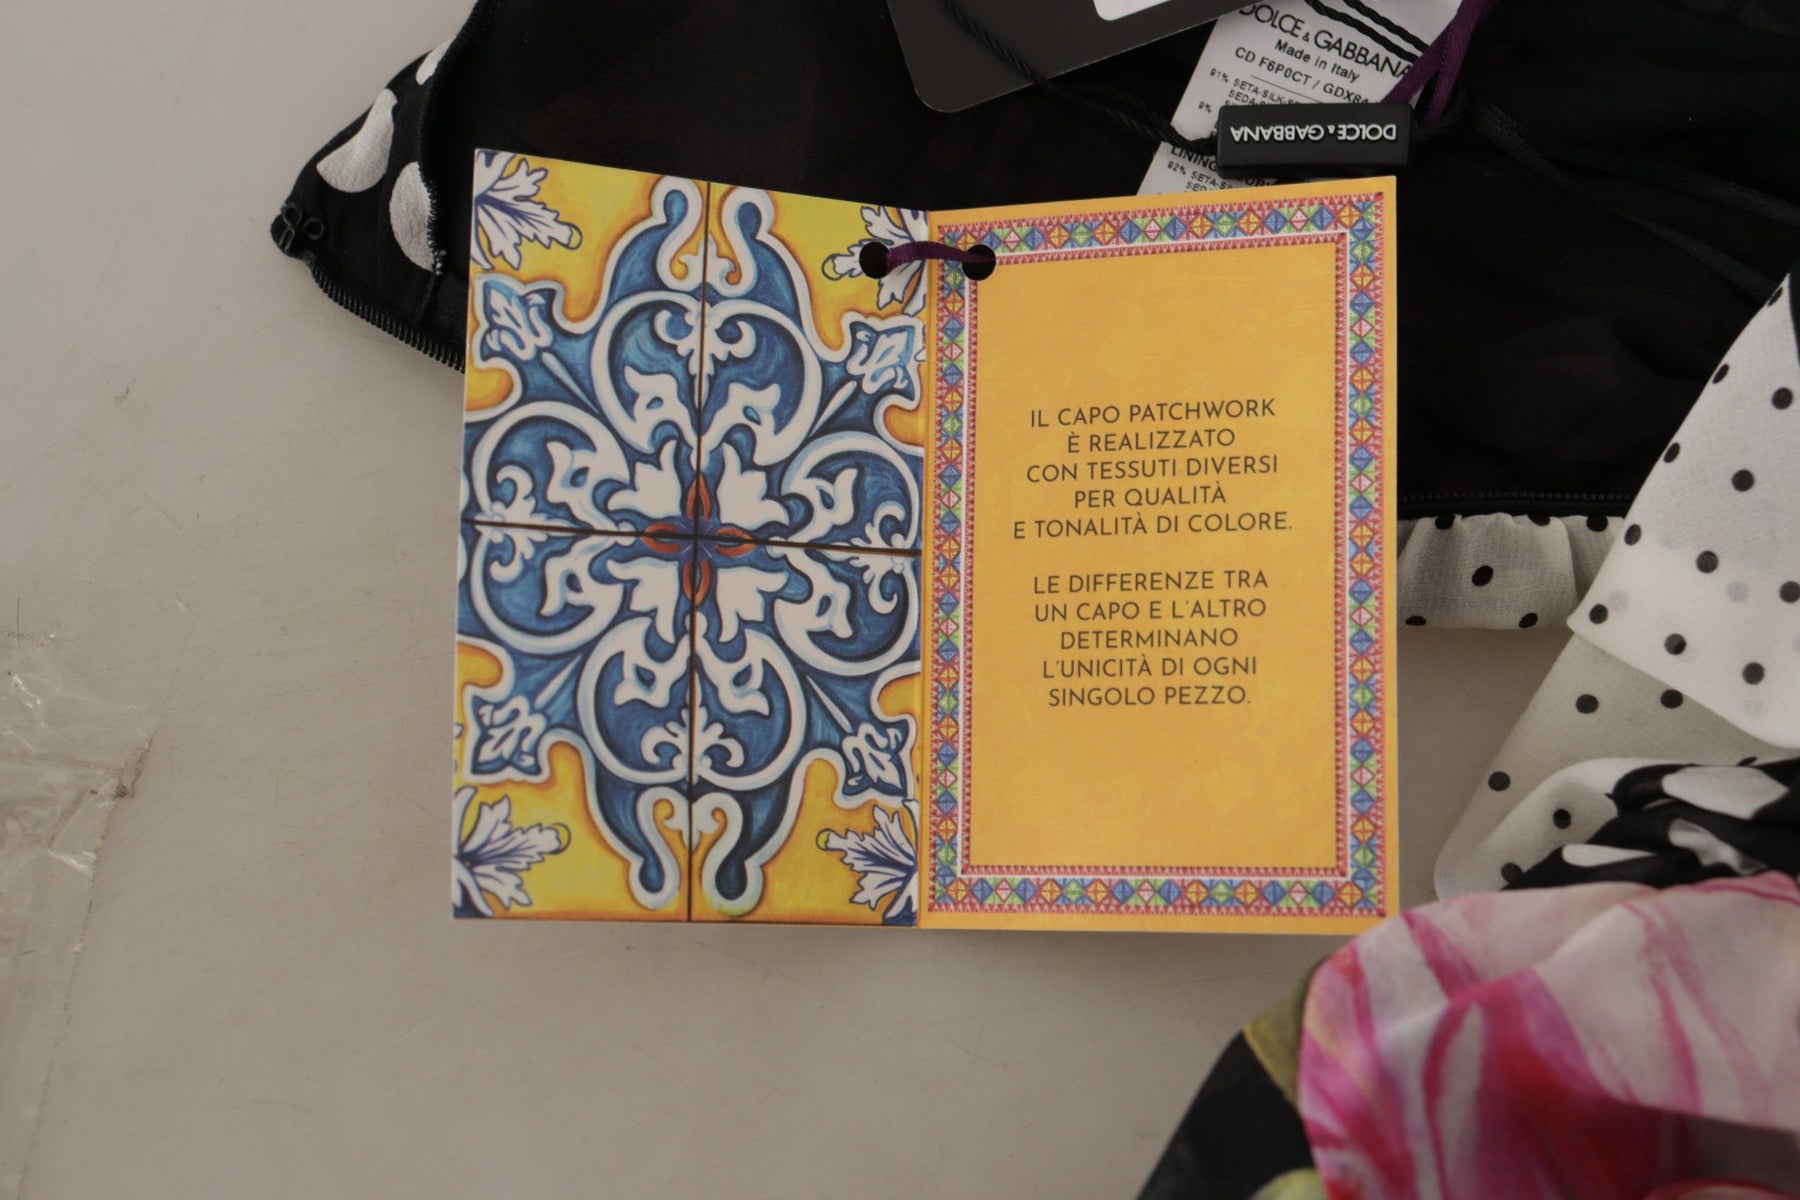 DOLCE & GABBANA
Made in Italy
CD F6P0CT / GDX
91% SETA-SILK
9%
DOLCE & GABBANA
LINING
92% SETA
IL CAPO PATCHWORK
È REALIZZATO
CON TESSUTI DIVERSI
PER QUALITÀ
E TONALITÀ DI COLORE.
LE DIFFERENZE TRA
UN CAPO E L'ALTRO
DETERMINANO
L'UNICITÀ DI OGNI
SINGOLO PEZZO.